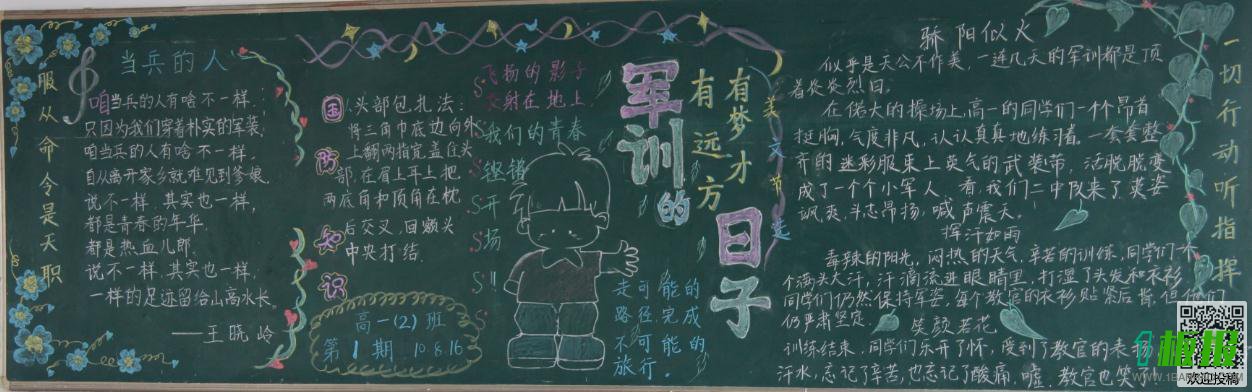 服从命令是天职
当兵的人
咱当兵的人有啥不一样,
只因为我们穿着朴实的军装.
咱当兵的人有啥不一样,
自从离开家乡就难见到爹娘.
说不一样,其实也一样,
都是青春的年华.
都是热血儿郎.
说不一样,其实也一样.
一样的足迹留给山高水长.
——王晓岭
国防知识
头部包扎法:
将三角巾底边向外
上翻两指宽盖住头
部,在眉上耳上把
两底角和顶角在枕
后交叉,回额头
中央打结.
高一(2)班
第1期 10.8.16
飞扬的影子
投射在地上
我们的青春
继错
开
场
!!
军训的日子
有梦才
有远方
美文节选
走可能的
路径完成
不可能的
旅行.
骄阳似火
似乎是天公不作美,一连几天的军训都是顶
着炎炎烈日。
在偌大的操场上,高一的同学们一个个昂首
挺胸,气度非凡,认认真真地练习着.一套套整
齐的迷彩服束上英气的武装带,活脱脱变
成了一个个小军人.看,我们二中队来了,英姿
飒爽,斗志昂扬,喊声震天。
挥汗如雨
毒辣的阳光,闷热的天气,辛苦的训练,同学们个
个满头大汗,汗滴流进眼睛里,打湿了头发和衣衫
同学们仍然保持军姿,每个教官的衣衫贴紧后背,但他们
仍严肃坚定.
笑颜若花
训练结束,同学们乐开了怀,受到了教官的表扬
汗水,忘记了辛苦,也忘记了酸痛,嘘,教官也笑
一切行动听指挥
1板报
欢迎投稿